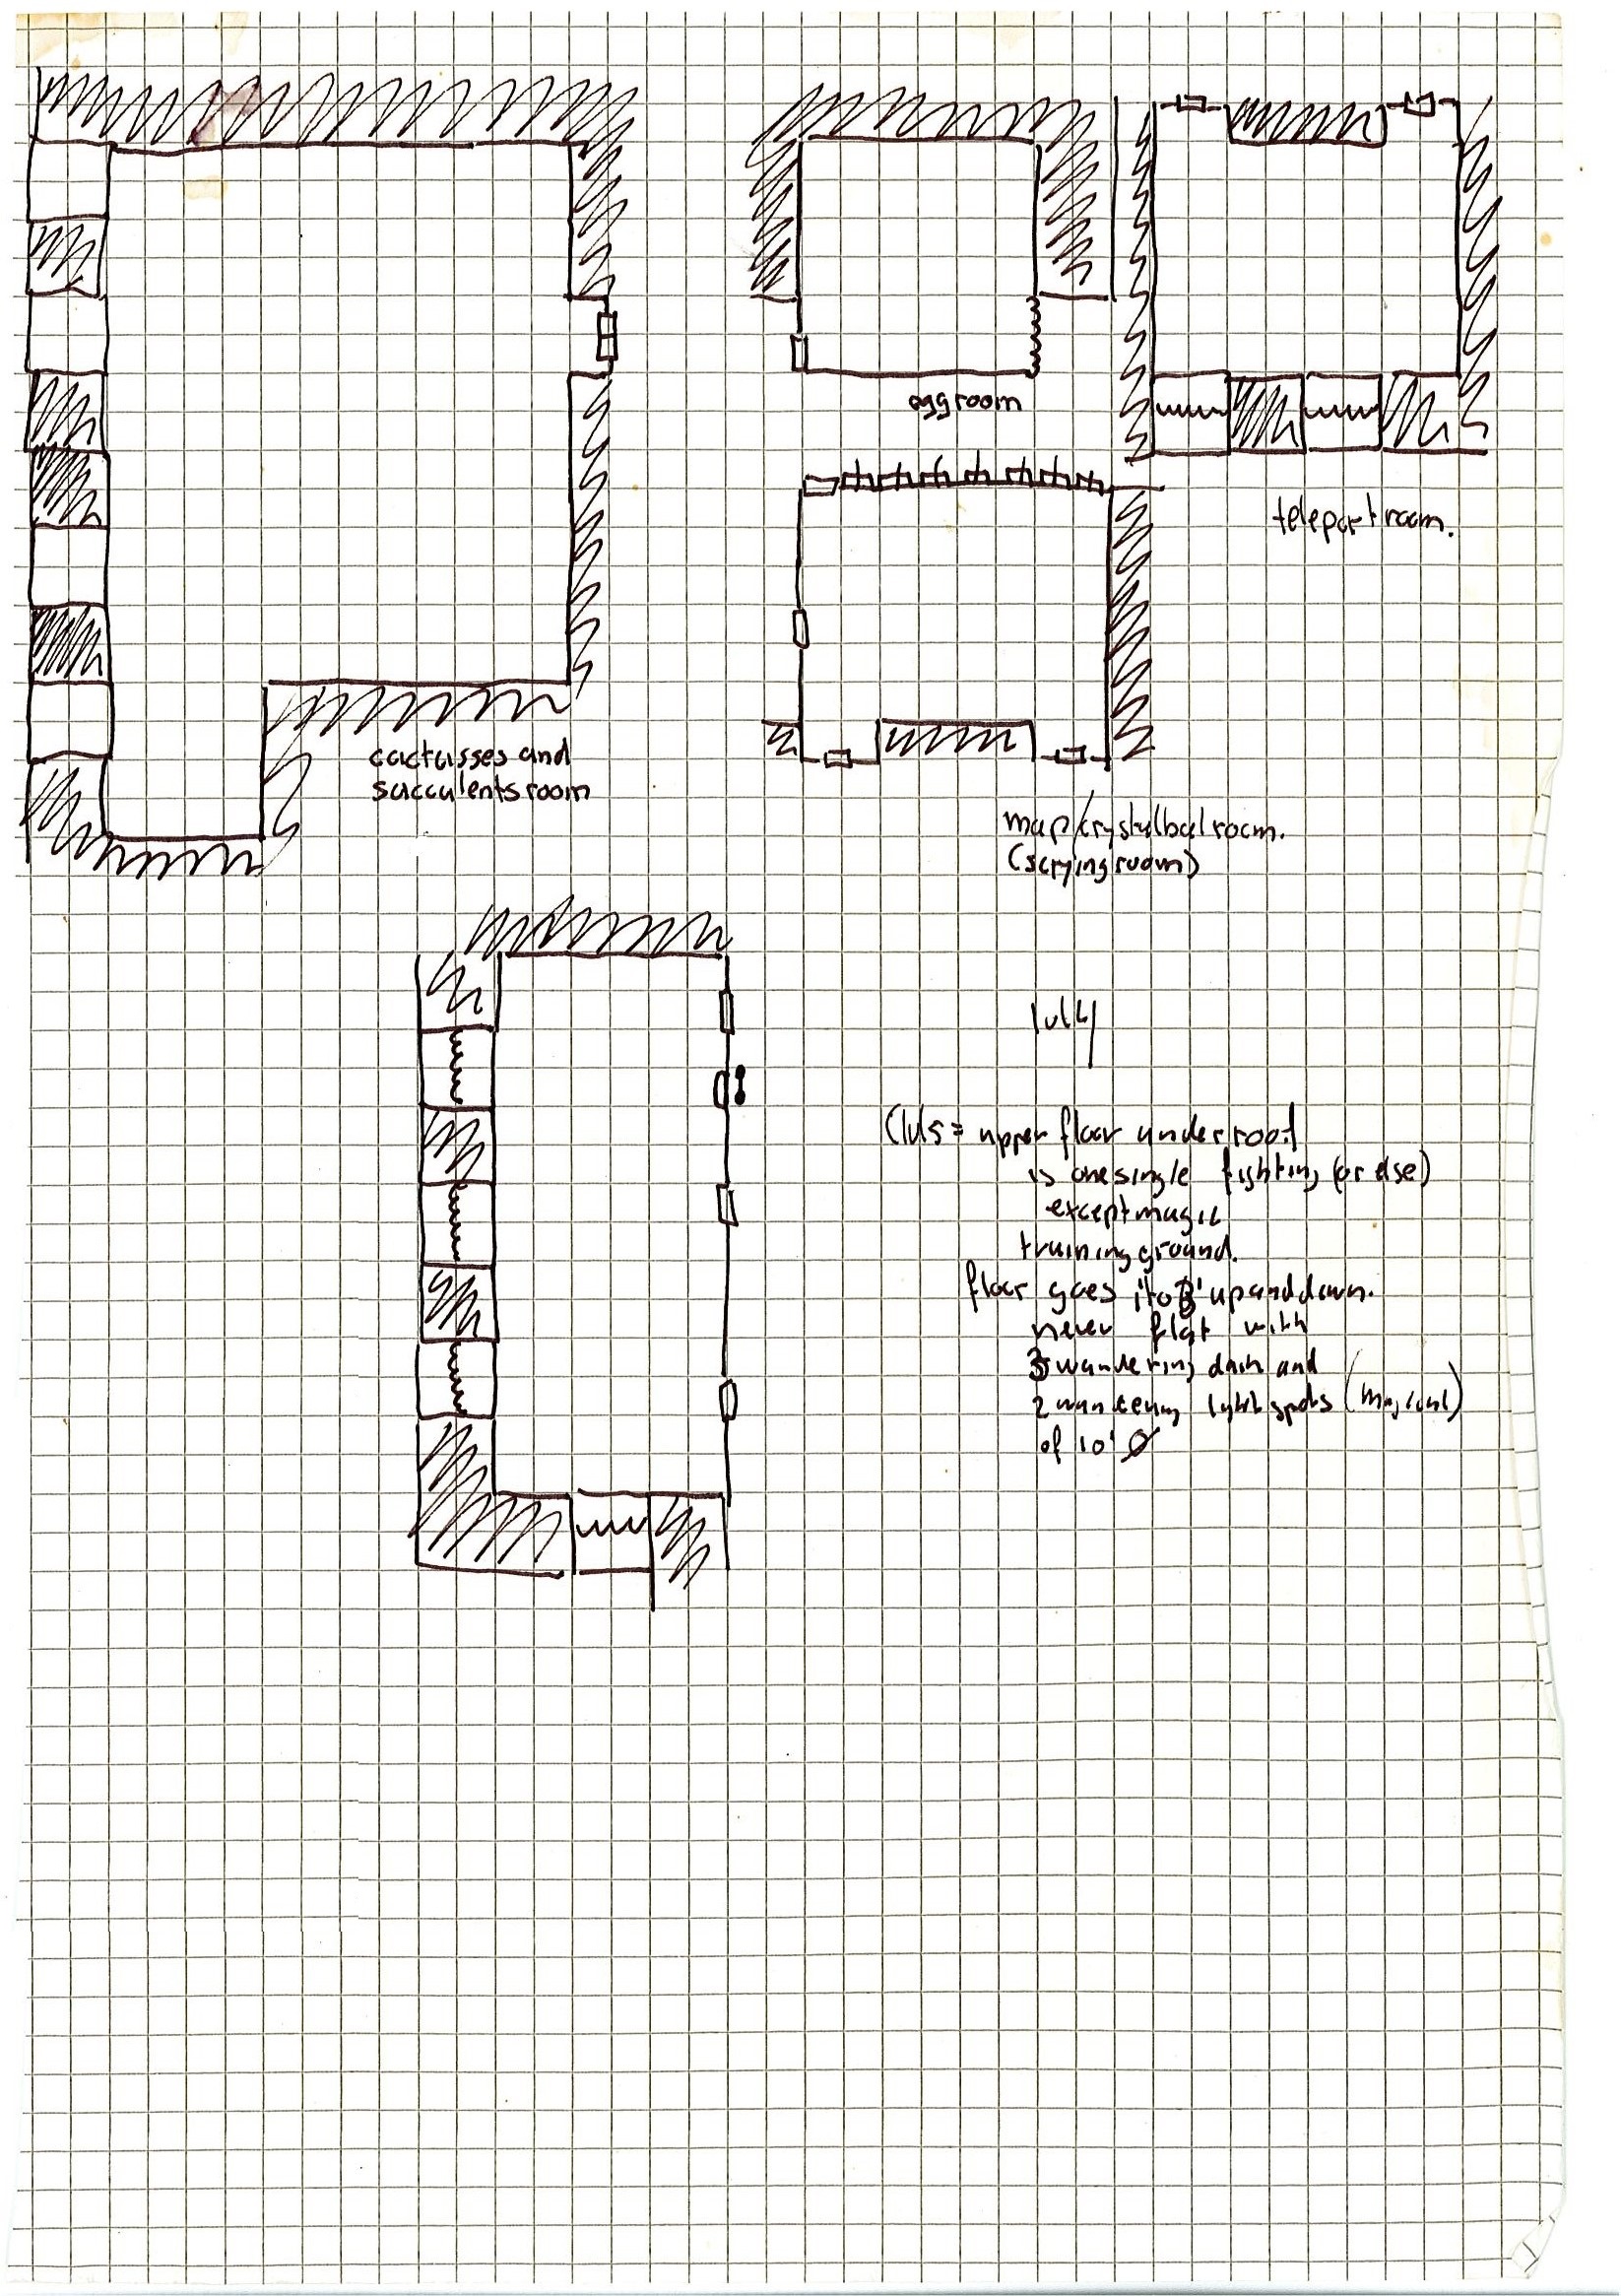 eggroom
teleportroom.
cactusses and
succulentsroom
map/crystalbal room.
(scryingroom)
lvl4
(lvl5 = upper floor under roof
is one single fighting (or else)
except magic
training ground.
floor goes 1' to 3' up and down.
never flat with
3 wandering dark and
2 wandering light spots (magical)
of 10' Ø